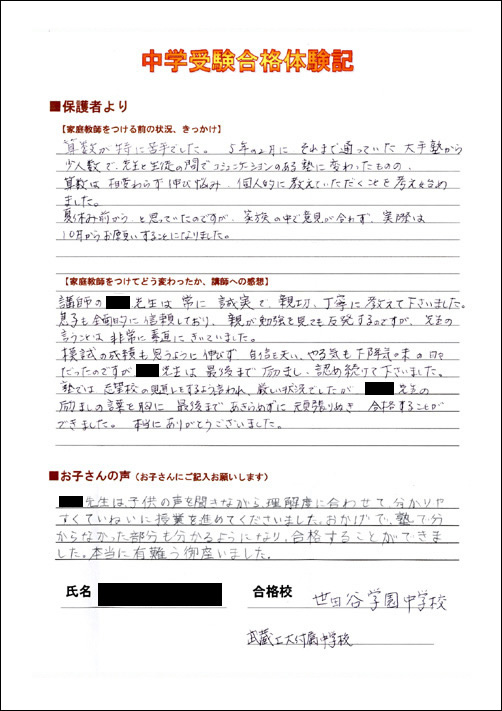 中学受験合格体験記
■保護者より
【家庭教師をつける前の状況、きっかけ】
算数が特に苦手でした。5年の2月に それまで通っていた 大手塾から
少人数で、先生と生徒の間でコミュニケーションのある塾に変わったものの、
算数は 相変わらず伸び悩み、個人的に教えていただくことを考え始め
ました。
夏休み前から と思っていたのですが、家族の中で意見が合わず、実際は
10月からお願いすることになりました。
【家庭教師をつけてどう変わったか、講師への感想】
講師の 先生は 常に 誠実で、親切、丁寧に 教えて下さいました。
息子も全面的に信頼しており、親が勉強を見ても反発するのですが、先生の
言うことは 非常に 素直に きいていました。
模試の成績も思うように伸びず 自信を失い、やる気も下降気味の日々
だったのですが 先生は 最後まで 励まし、認め続けて下さいました。
塾では 志望校の見直しをするよう言われ、厳しい状況でしたが 先生の
励ましの言葉を胸に 最後まで あきらめずに 頑張りぬき 合格することが
できました。 本当に ありがとうございました。
■お子さんの声（お子さんにご記入お願いします）
先生は、子供の声を聞きながら、理解度に合わせて、分かりや
すくていねいに授業を進めてくださいました。おかげで、塾で分
からなかった部分も分かるようになり、合格することができま
した。本当に有難う御座いました。
氏名 合格校 世田谷学園中学校
武蔵工大付属中学校